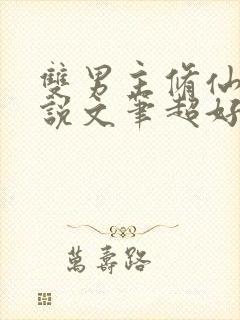 雙男主脩仙
說文筆超好
萬壽路